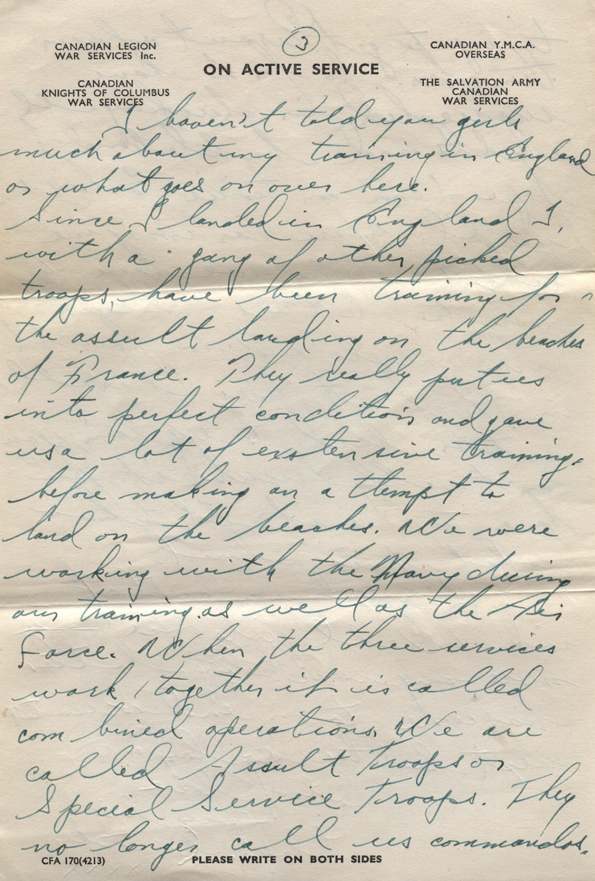 3
CANADIAN LEGION
WAR SERVICES Inc.
CANADIAN
KNIGHTS OF COLUMBUS
WAR SERVICES
ON ACTIVE SERVICE
CANADIAN Y.M.C.A.
OVERSEAS
THE SALVATION ARMY
CANADIAN
WAR SERVICES
I haven't told you girls
much about my training in England
or what goes on over here.
Since I landed in England I,
with a gang of other picked
troops, have been training for
the assult landing on the beaches
of France. They really put us
into perfect condition and gave
us a lot of exstensive training.
before making an attempt to
land on the beaches. We were
working with the Navy during
our training as well as the Air
Force. When the three services
work together it is called
combined operations. We are
called Assult Troops or
Special Service Troops. They
no longer call us commandos.
CFA 170(4213)
PLEASE WRITE ON BOTH SIDES